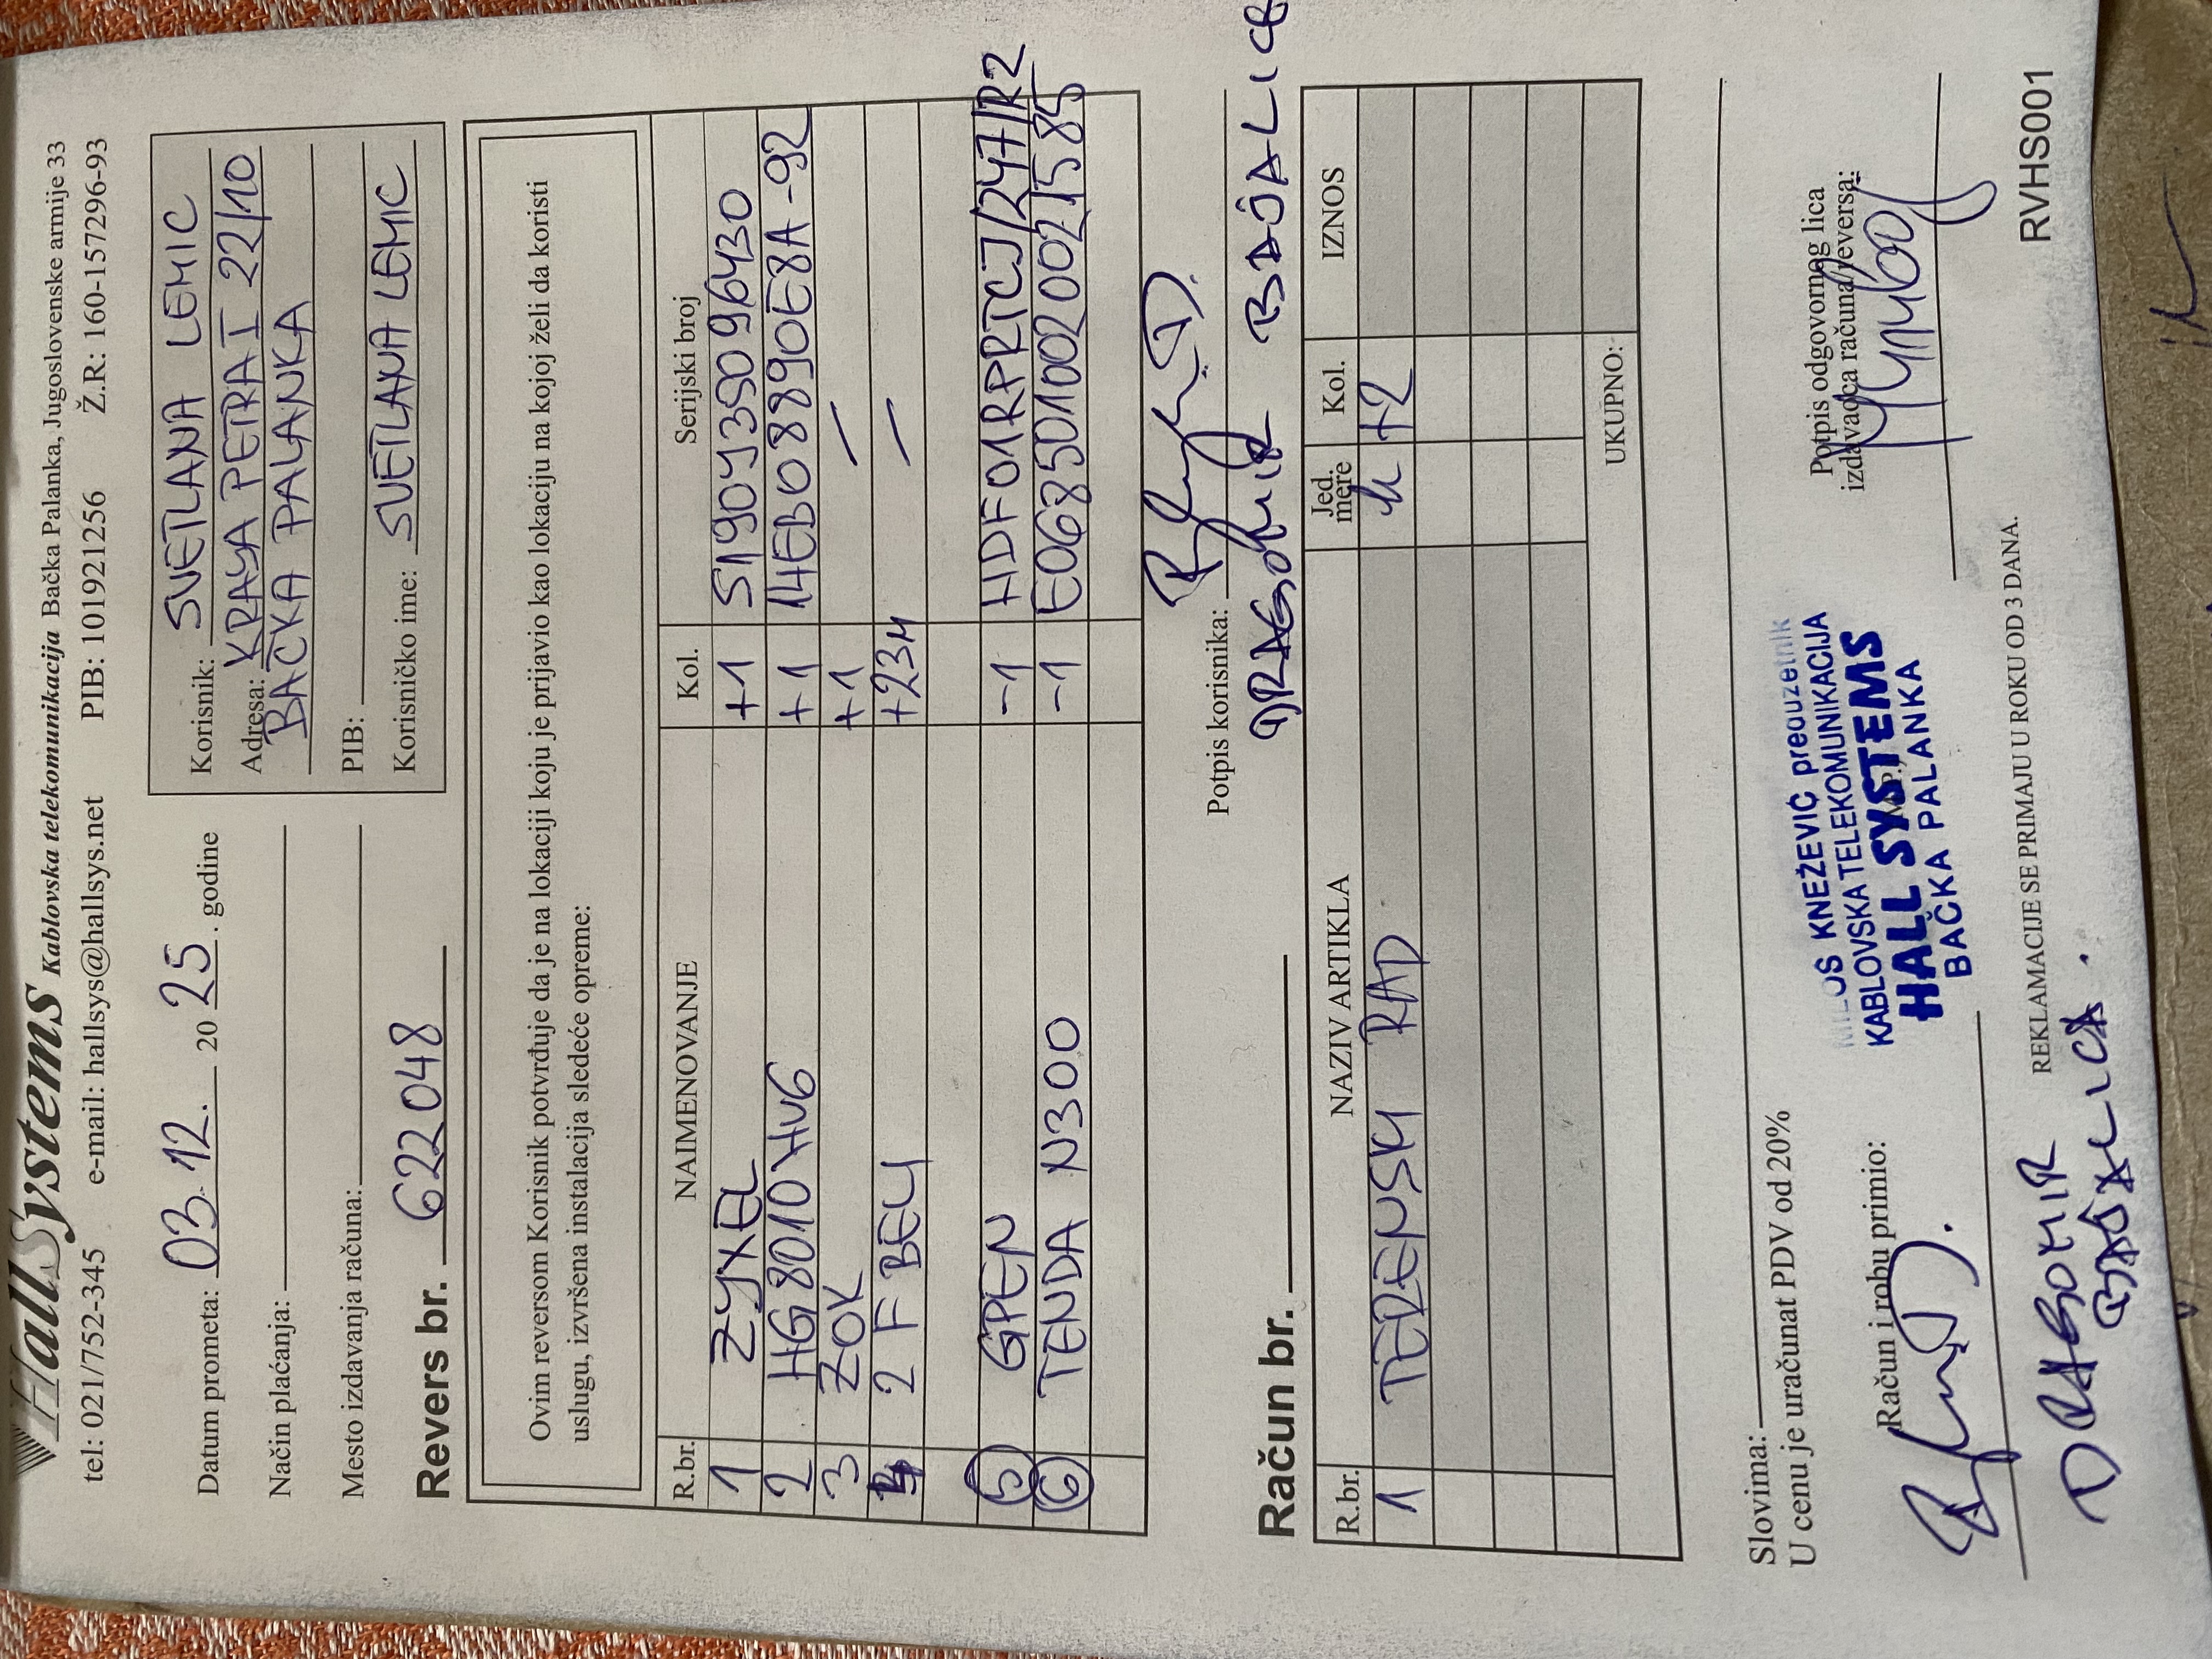 HallSystems Kablovska telekomunikacija Bačka Palanka, Jugoslovenske armije 33
tel: 021/752-345 e-mail: hallsys@hallsys.net PIB: 101921256 Ž.R: 160-157296-93
Datum prometa: 03.12. 2025. godine
Način plaćanja:
Mesto izdavanja računa:
Revers br. 622048
Korisnik: SVETLANA LEMIC
Adresa: KRAYA PETRA I 22/10
BAČKA PALANKA
PIB:
Korisničko ime: SVETLANA LEMIC
Ovim reversom Korisnik potvrđuje da je na lokaciji koju je prijavio kao lokaciju na kojoj želi da koristi
uslugu, izvršena instalacija sledeće opreme:
R.br. NAIMENOVANJE Kol. Serijski broj
1 ZYXEL +1 S190Y35096430
2 HG8010Hv6 +1 14EB08890E8A-92
3 ZOK +1 /
4 2 F BELI +23M /
5 GPEN -1 HDF01RPRTCJ/247/R2
6 TENDA N300 -1 E0685010020021585
Potpis korisnika:
DRAGOMIR BAJALICA
Račun br.
R.br. NAZIV ARTIKLA Jed. mere Kol. IZNOS
1 TERENSKI RAD h +2
UKUPNO:
Slovima:
U cenu je uračunat PDV od 20%
Račun i robu primio:
DRAGOMIR
BAJALICA.
MILOŠ KNEŽEVIĆ preduzetnik
KABLOVSKA TELEKOMUNIKACIJA
HALL SYSTEMS
BAČKA PALANKA
Potpis odgovornog lica
izdavaoca računa/reversa:
REKLAMACIJE SE PRIMAJU U ROKU OD 3 DANA.
RVHS001